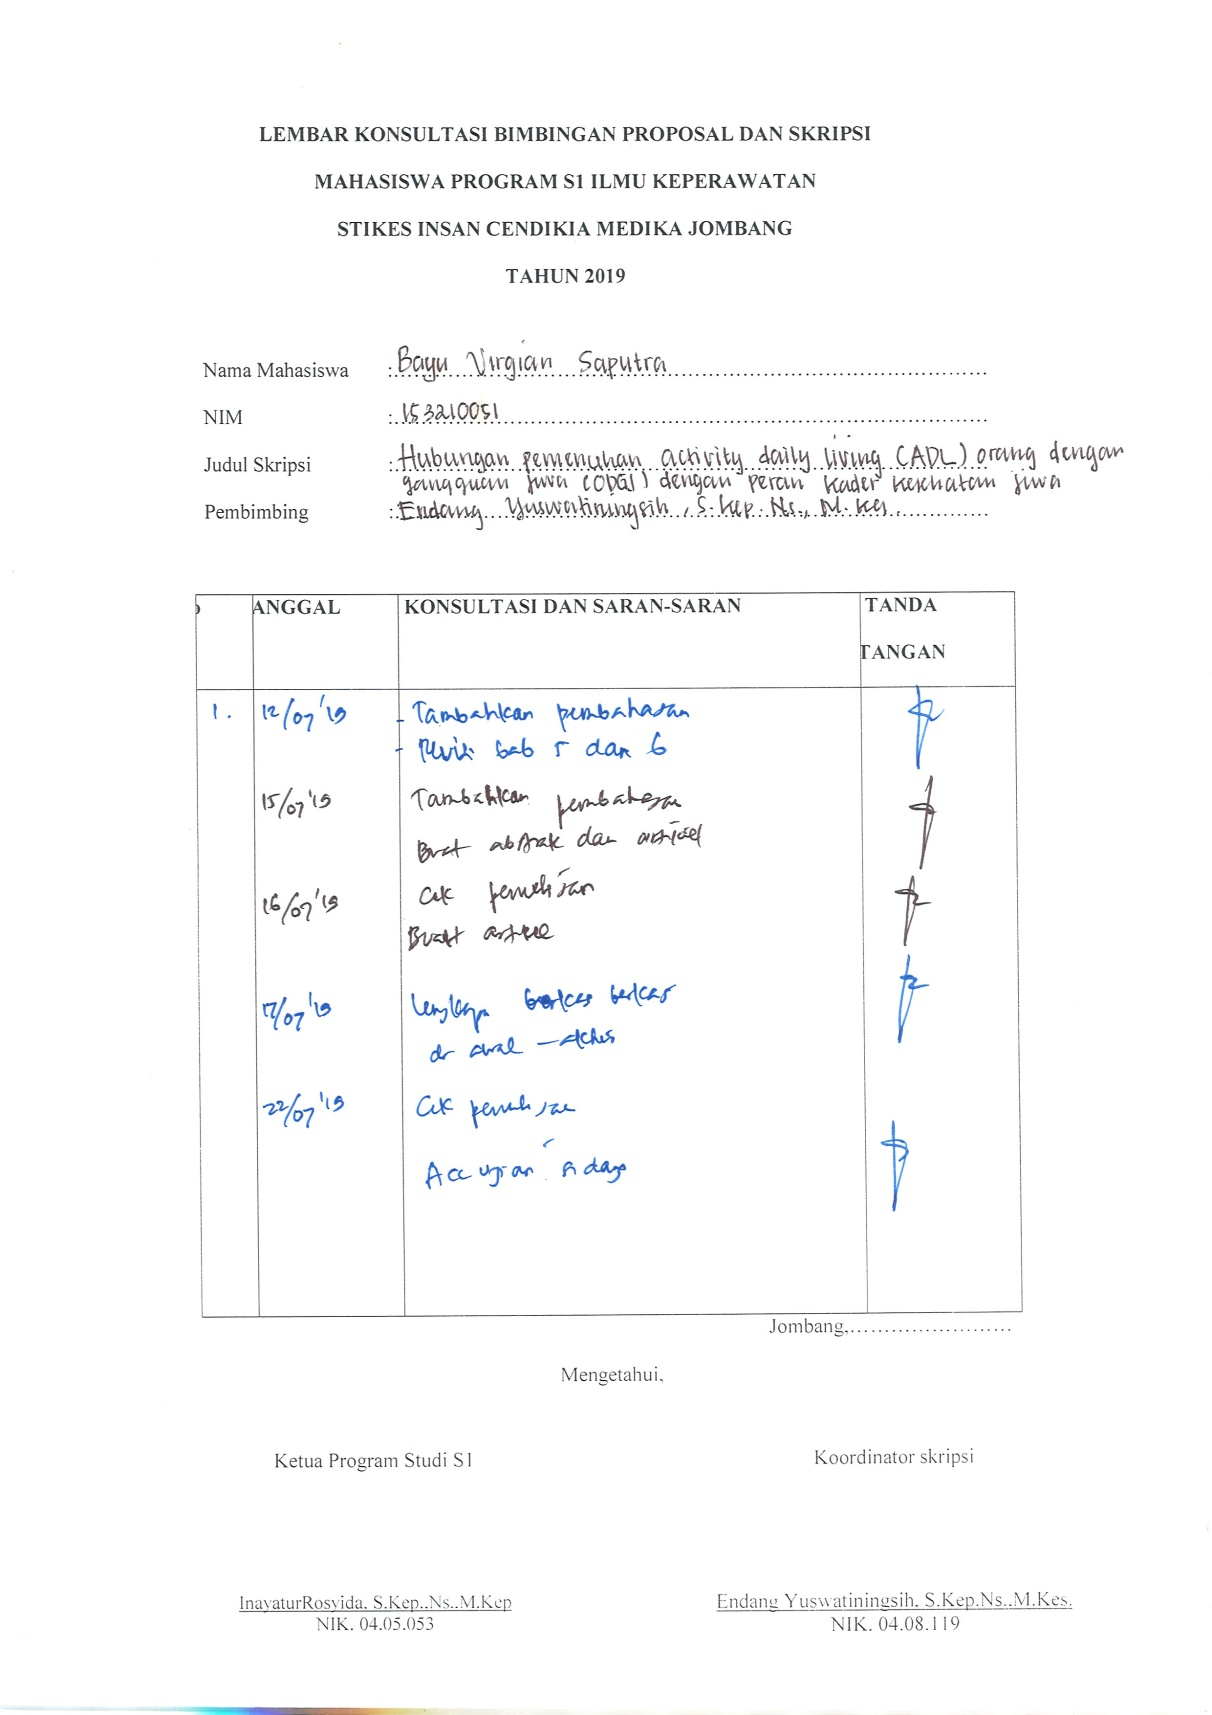 LEMBAR KONSULTASI BIMBINGAN PROPOSAL DAN SKRIPSI
MAHASISWA PROGRAM S1 ILMU KEPERAWATAN
STIKES INSAN CENDIKIA MEDIKA JOMBANG
TAHUN 2019
Nama Mahasiswa : Bayu Virgian Saputra
NIM : 153210051
Judul Skripsi : Hubungan pemenuhan activity daily living (ADL) orang dengan
gangguan jiwa (ODGJ) dengan peran kader kesehatan jiwa
Pembimbing : Endang Yuswatiningsih, S.Kep.Ns., M.Kes.
ANGGAL KONSULTASI DAN SARAN-SARAN TANDA
TANGAN
1. 12/07 '19 - Tambahkan pembahasan
- Revisi bab 5 dan 6
15/07 '19 Tambahkan pembahasan
Buat abstrak dan artikel
16/07 '19 Cek penulisan
Buat artikel
17/07 '19 Lengkapi berkas
dr awal –
22/07 '19 Cek penulisan
Acc ujian
Jombang,........................
Mengetahui,
Ketua Program Studi S1 Koordinator skripsi
InayaturRosyida, S.Kep.,Ns.,M.Kep Endang Yuswatiningsih, S.Kep.Ns.,M.Kes.
NIK. 04.05.053 NIK. 04.08.119